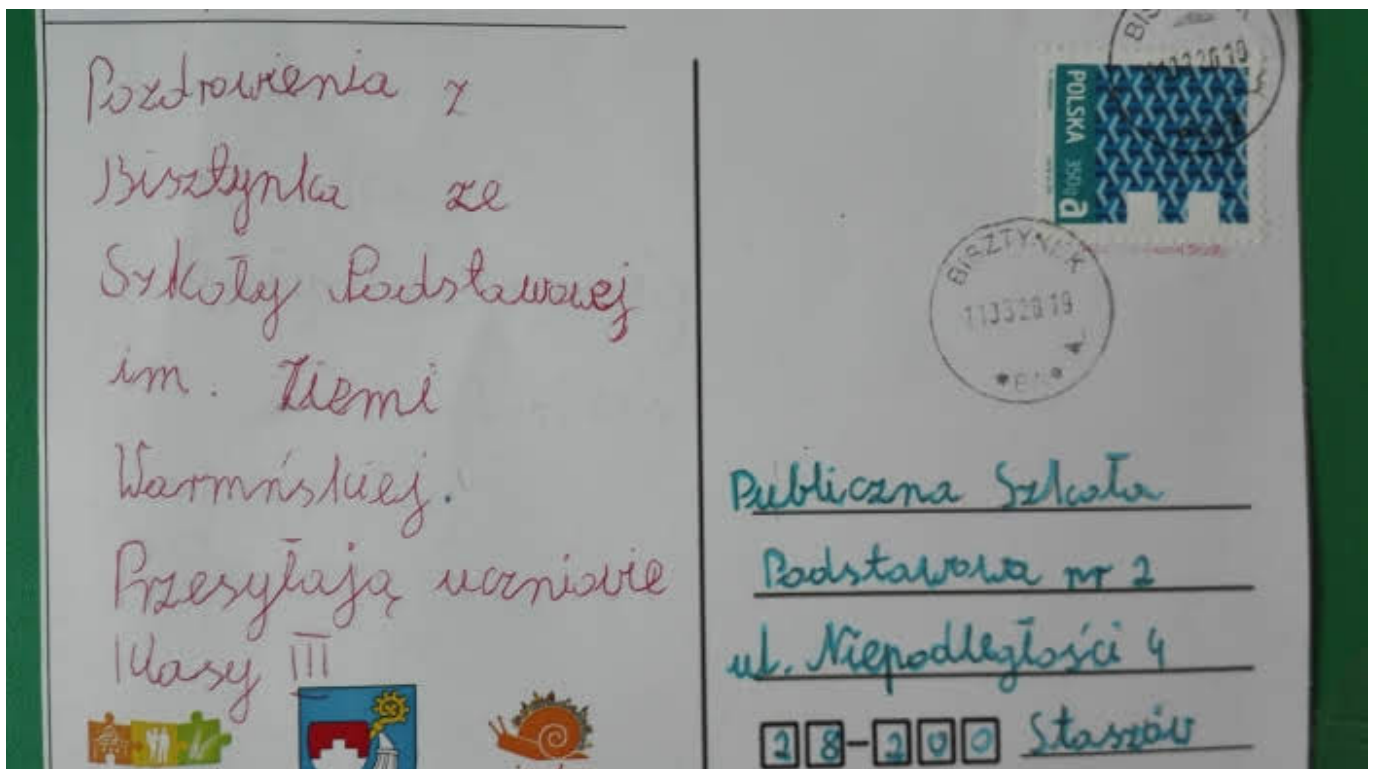 Pozdrowienia z
Bisztynka ze
Szkoły Podstawowej
im. Ziemi
Warmńskiej.
Przesyłają uczniowie
klasy III
POLSKA 350g a
BISZTYNEK
Publiczna Szkoła
Podstawowa nr 2
ul. Niepodległości 4
28-200 Staszów